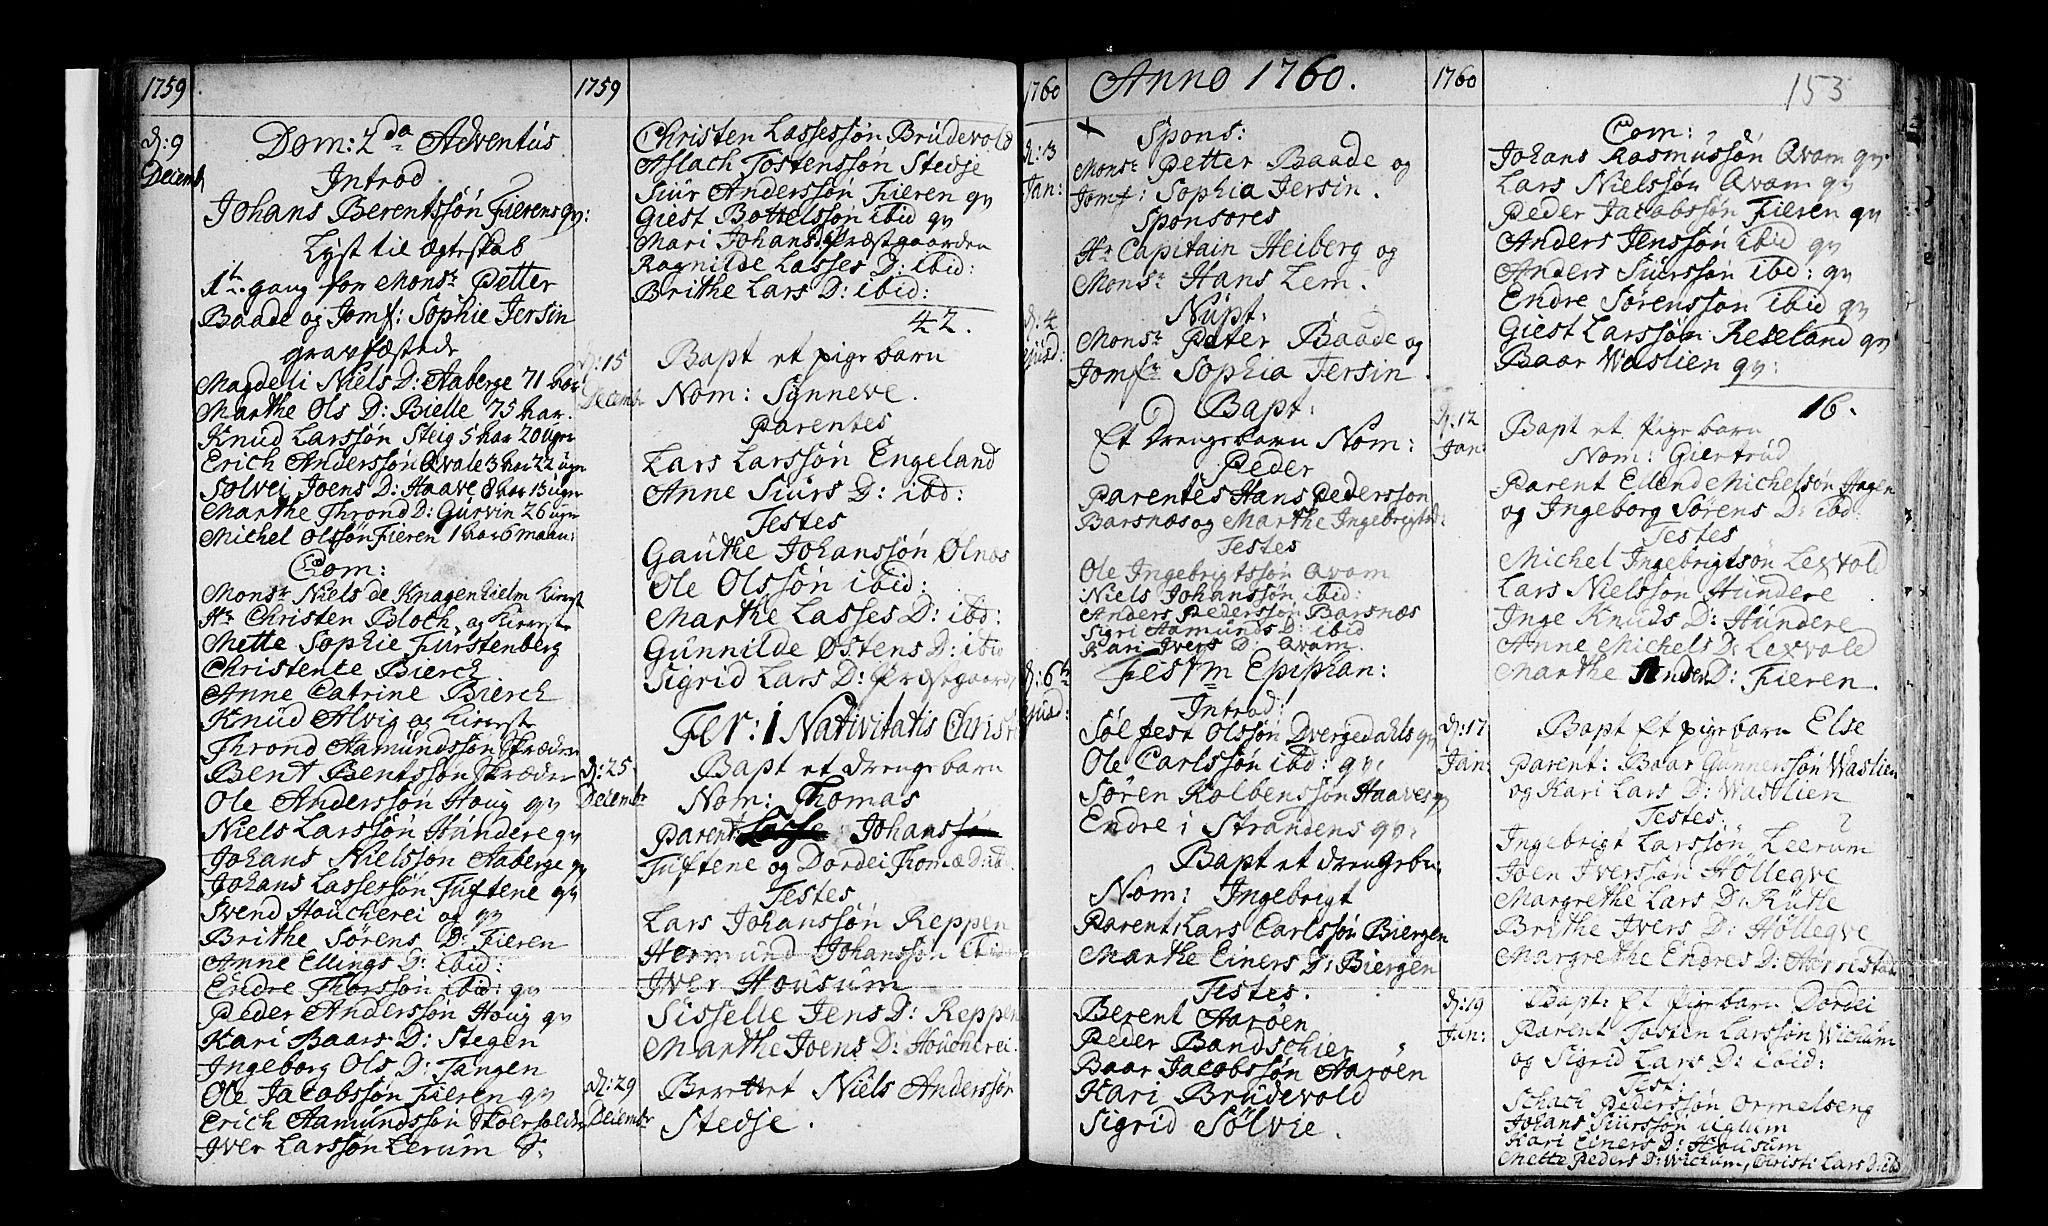 1759
d: 9
Decemb
Dom: 2da Adventus
Introd
Johans Berentssøn Fierens qv:
Lyst til ægteskab
1te gang for Monsr Petter
Baade og Jomf: Sophie Jersin
gravfæstede
Magdeli Niels D: Aaberge 71 aar
Marthe Ols D: Bielle 75 aar.
Knud Larssøn Steig 5 aar 20 ugr
Erich Anderssøn Qvale 3 aar 22 ugr
Sølvei Joens D: Haave 8 aar 13 ugr
Marthe Thrond D: Gurvin 26 ugr
Michel Olssøn Fieren 1 aar 6 maan:
Com:
Monsr Niels de Knagenhielm kierest
Hr Christen Bloch og kiereste
Mette Sophie Fürstenberg
Christence Bierch
Anne Catrine Bierch
Knud Alvig og kiereste
Thrond Aamundssøn Skræder
Bent Bentssøn Skræder
Ole Anderssøn Houg qv
Niels Larssøn Hundere qv
Johans Nielssøn Aaberge qv
Johans Lassessøn Tuftene qv
Svend Houcherei og qv
Brithe Sørens D: Fieren
Anne Ellings D: ibid:
Endre Thorssøn ibid: qv
Peder Anderssøn Houg qv
Kari Baars D: Stegen
Ingeborg Ols D: Tangen
Ole Jacobssøn Fieren qv
Erich Aamundssøn
Iver Larssøn Lerum S:
1759
Christen Lassessøn Brudevold
Aslach Tostenssøn Stedje
Siur Anderssøn Fieren qv
Giest Bottelssøn ibid qv
Mari Johans D Præstgaarden
Ragnilde Lasses D: ibid:
Brithe Lars D: ibid:
42.
d: 15
Decemb
Bapt et pige barn
Nom: Synneve.
Parentes
Lars Larssøn Engeland
Anne Siurs D: ibd:
Testes
Gauthe Johanssøn Ølnæs
Ole Olssøn ibid:
Marthe Lasses D: ibd:
Gunnilde Østens D: ibid
Sigrid Lars D: Præstgaard
Fer: 1 Nativitatis Christi
d: 25
Decembr
Bapt et drenge barn
Nom: Thomas
Parent Lasse Johanssøn
Tuftene og Dordei Thomæ D: ibd
Testes
Lars Johanssøn Reppen
Hermund Johanssøn ibid
Iver Housum
Sisselle Jens D: Reppen
Marthe Joens D: Houcherei.
d: 29
Decembr
Berettet Niels Anderssøn
Stedje.
1760
Anno 1760.
d: 3
Jan:
Spons:
Monsr Petter Baade og
Jomf: Sophia Jersin.
Sponsores
Hr Capitain Heiberg og
Monsr Hans Lem.
d: 4
ejusd:
Nupt:
Monsr Peter Baade og
Jomfr Sophia Jersin.
Bapt:
Et Drenge barn Nom:
Peder
Parentes Hans Pederssøn
Barsnæs og Marthe Ingebrigts D:
Testes
Ole Ingebrigtssøn Qvam
Niels Johanssøn ibid:
Anders Pederssøn Barsnæs
Sigri Aamunds D: ibid
Kari Ivers D: Qvam.
d: 6te
ejusd:
Festm Epiphan:
Introd:
Sølfest Olssøn Dvergedahls qv
Ole Carlssøn ibd: qv:
Søren Kolbenssøn Haaves qv
Endre i Strandens qv:
Bapt et drengebn
Nom: Ingebrigt
Parent: Lars Carlssøn Biergen
Marthe Einers D: Biergen
Testes.
Berent Aarøen
Peder Bandschier
Baar Jacobssøn Aarøen
Kari Brudevold
Sigrid Sølvie.
1760
153
Com:
Johans Rasmussøn Qvam qv.
Lars Nielssøn Qvam qv
Peder Jacobssøn Fieren qv
Anders Jenssøn ibid qv
Anders Siurssøn ibd: qv
Endre Sørenssøn ibid qv
Giest Larssøn Reseland qv
Baar Waslien qv:
16.
d: 12
Jan:
Bapt et pige barn
Nom: Giertrud
Parent Ellend Michelssøn Hagen
og Ingeborg Sørens D: ibd:
Testes
Michel Ingebrigtsøn Lexvold
Lars Nielssøn Hundere
Inge Knuds D: Hundere
Anne Michels D: Lexvold
Marthe Anders D: Fieren.
d: 17
Jan:
Bapt Et pige barn Else
Parent: Baar Gunnerssøn Waslien
og Kari Lars D: Waslien
Testes.
Ingebrigt Larssøn Leerum
Joen Iverssøn Hollegve
Margrethe Lars D: Rutle
Brithe Ivers D: Høllegve
Margrethe Endres D: Aarrestad
d: 19
Jan:
Bapt: Et pige barn Dordei
Parent Tosten Larssøn Wichum
og Sigrid Lars D: ibid:
Test:
Schach Pederssøn Ormelseng
Johans Siurssøn Uglum
Kari Einers D: Housum
Mette Peders D: Wichum, Christi Lars D: ibd